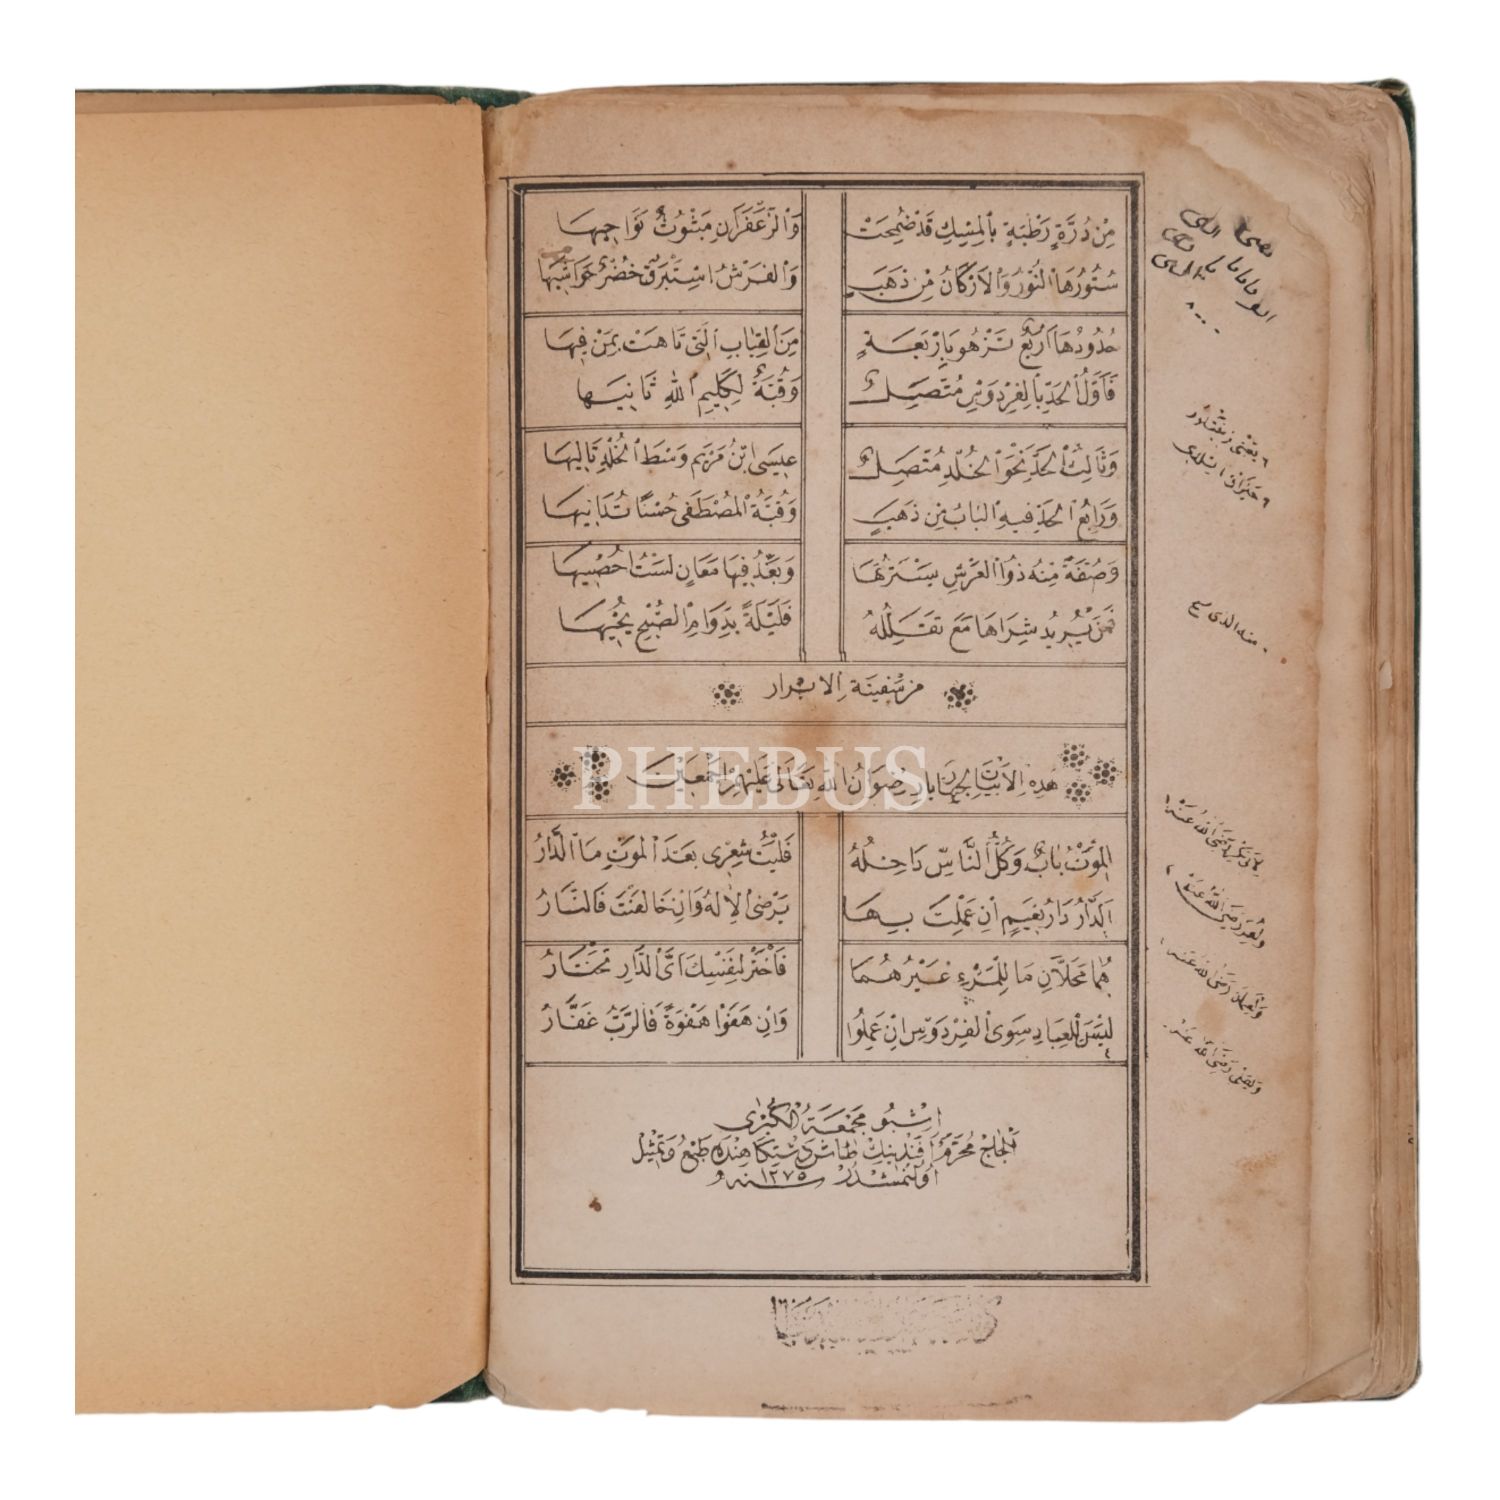 مِنْ دُرَّةٍ رَطْبَةٍ بِالْمِسْكِ قَدْ ضُمِحَتْ وَالزَّعْفَرَانِ مَبْثُوثٌ نَوَاجِيهَا
سُتُورُهَا النُّورُ وَالْاَرْكَانُ مِنْ ذَهَبٍ وَالْفَرْشُ اسْتِبْرَقٌ خُضْرٌ حَوَاشِيهَا
حُدُودُهَا اَرْبَعٌ تَزْهُو بِاَرْبَعَةٍ مِنَ الْقِبَابِ الَّتِى تَاهَتْ بِمَنْ فِيهَا
فَاَوَّلُ الْحَدِّ بِالْفِرْدَوْسِ مُتَّصِلٌ وَقُبَّةٌ لِكَلِيمِ اللهِ ثَانِيهَا
وَثَالِثُ الْحَدِّ نَحْوَ الْخُلْدِ مُتَّصِلٌ عِيسَى ابْنُ مَرْيَمَ وَسْطَ الْخُلْدِ تَالِيهَا
وَرَابِعُ الْحَدِّ فِيهِ الْبَابُ مِنْ ذَهَبٍ وَقُبَّةُ الْمُصْطَفَى حُسْنًا تُدَانِيهَا
وَصُفَّةٌ مِنْهُ ذُو الْعَرْشِ يَسْتَرُهَا وَبَعْدُ فِيهَا مَعَانٍ لَسْتُ اُحْصِيهَا
فَمَنْ يُرِيدُ شِرَاهَا مَعَ تَقَلُّلِهُ فَلَيْلَةً بِدَوَامِ الصُّبْحِ يُحْيِيهَا
من سفينة الابرار
هٰذِهِ الْاَبْيَاتُ لِچَهَارْيَارِ رِضْوَانُ اللهِ تَعَالَى عَلَيْهِمْ اَجْمَعِينَ
اَلْمَوْتُ بَابٌ وَكُلُّ النَّاسِ دَاخِلُهُ فَلَيْتَ شِعْرِى بَعْدَ الْمَوْتِ مَا الدَّارُ
اَلدَّارُ دَارُ نَعِيمٍ اِنْ عَمِلْتَ بِهَا يَرْضَى الْاِلٰهُ وَاِنْ خَالَفْتَ فَالنَّارُ
هُمَا مَحَلَّانِ مَا لِلْمَرْءِ غَيْرُهُمَا فَاخْتَرْ لِنَفْسِكَ اَىَّ الدَّارِ تَخْتَارُ
لَيْسَ لِلْعِبَادِ سِوَى الْفِرْدَوْسِ اِنْ عَمِلُوا وَاِنْ هَفَوْا هَفْوَةً فَالرَّبُّ غَفَّارُ
اشبو مجمعة الكبرى
الحاج محرم افندينك طاش دستكاهنده طبع و تمثيل
اولنمشدر سنه ١٢٧٥
منه الذى
لابو بكر رضى الله عنه
ولعمر رضى الله عنه
ولعثمان رضى الله عنه
ولعلى رضى الله عنه
PHEBUS